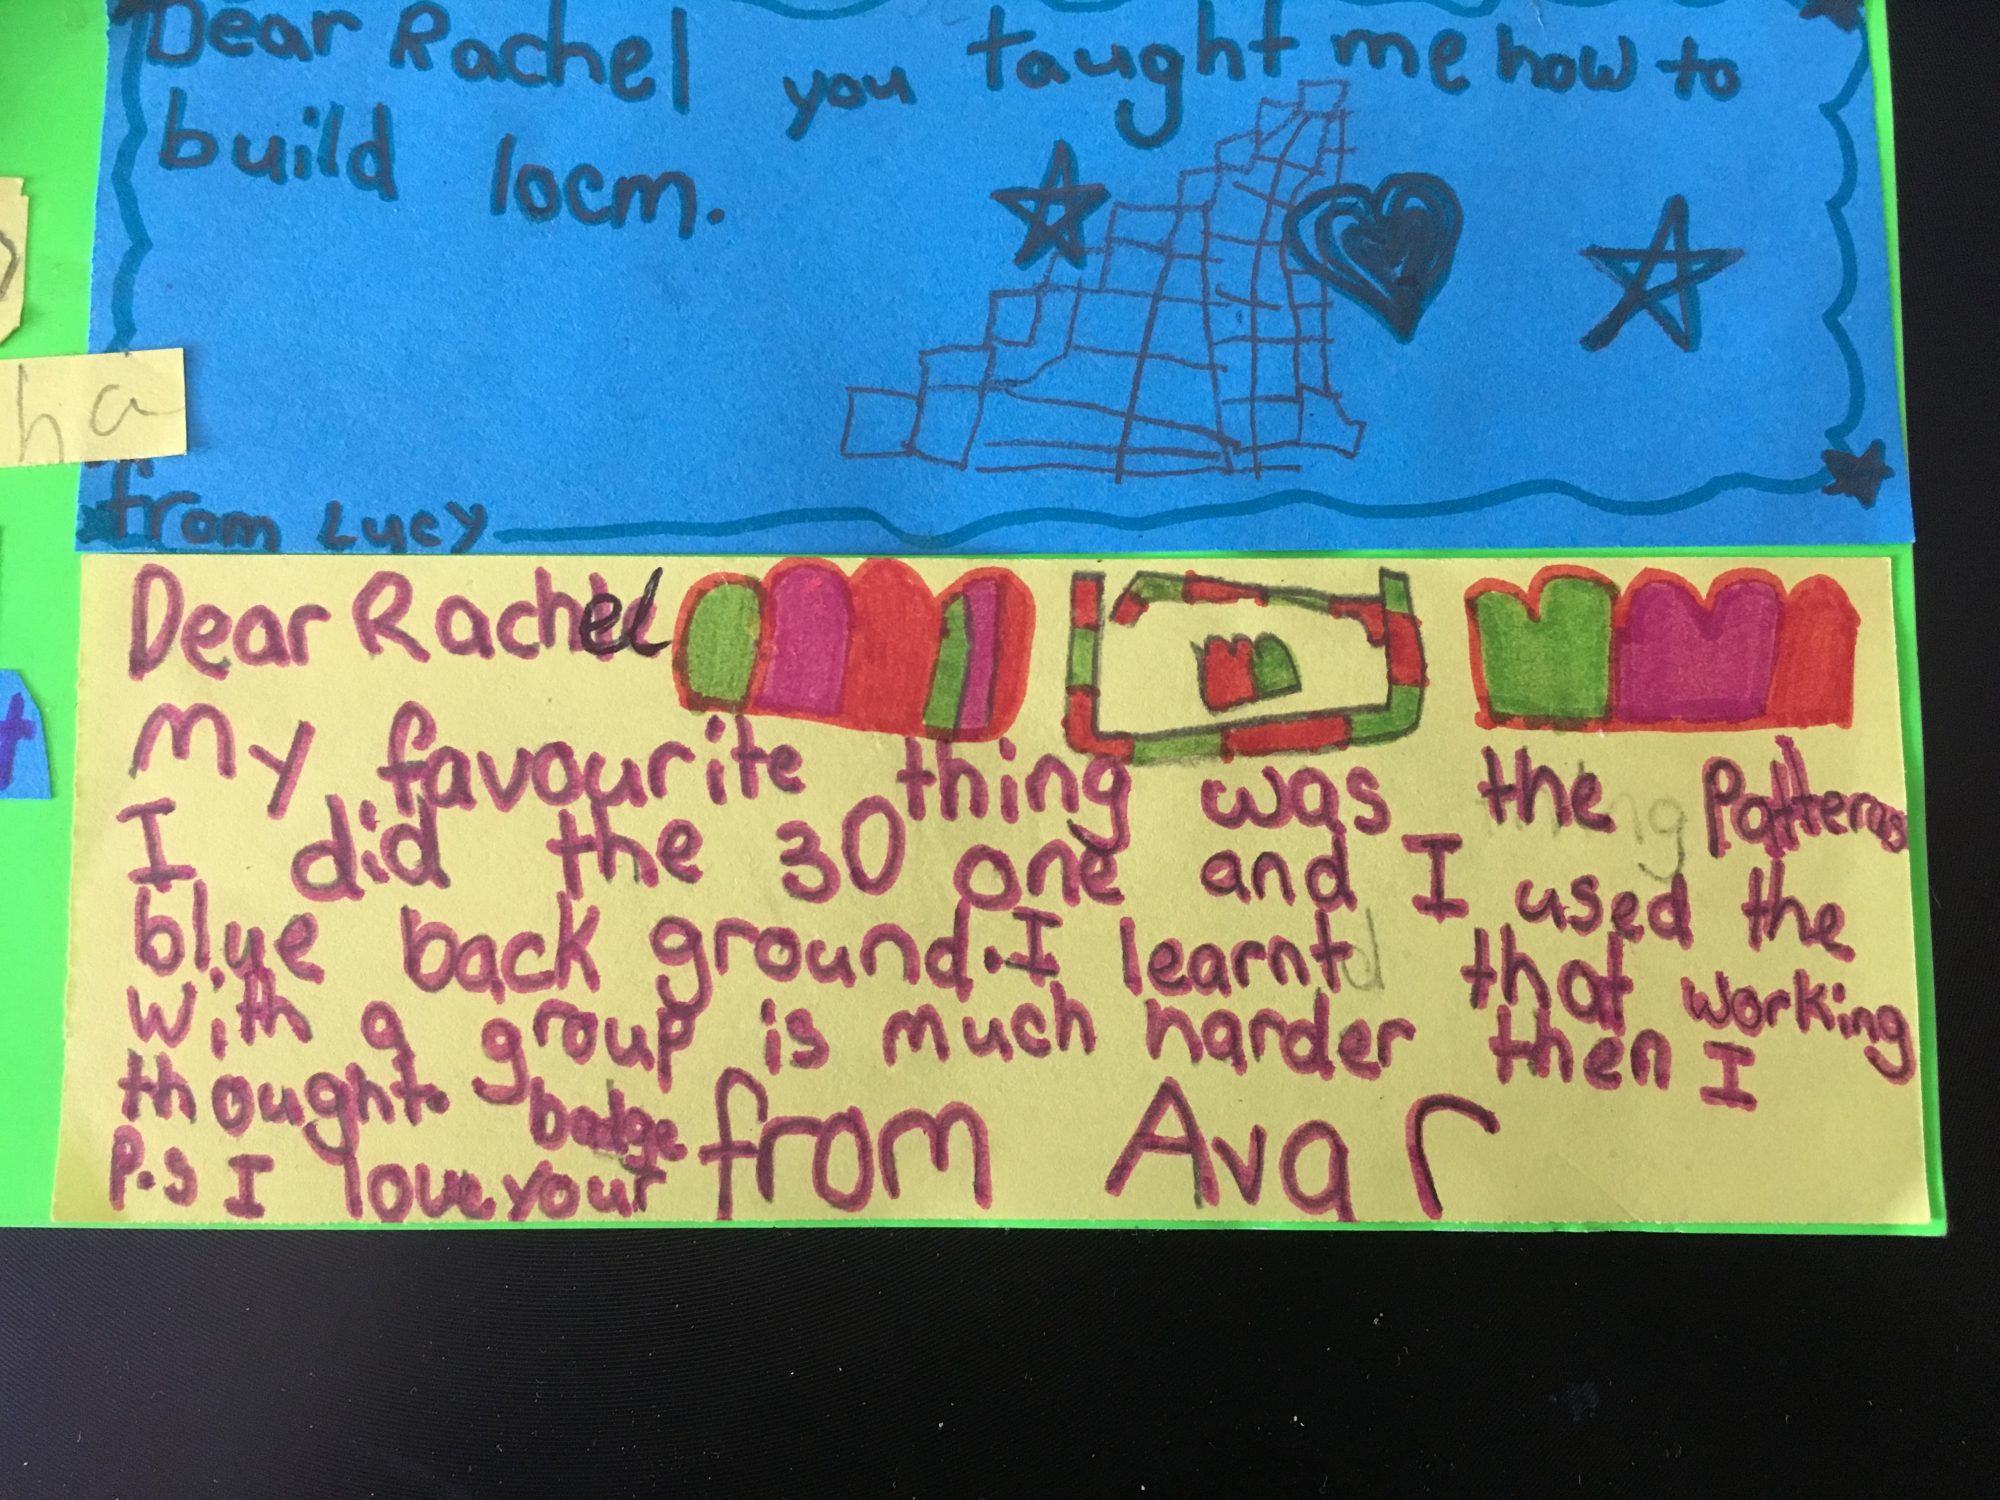 Dear Rachel you taught me how to
build locm.
ha
from Lucy
Dear Rachel
My favourite thing was the Patterns
I did the 30 one and I used the
blue back ground. I learnt that working
with a group is much harder then I
thought.
P.S I love your badge.
from Ava r